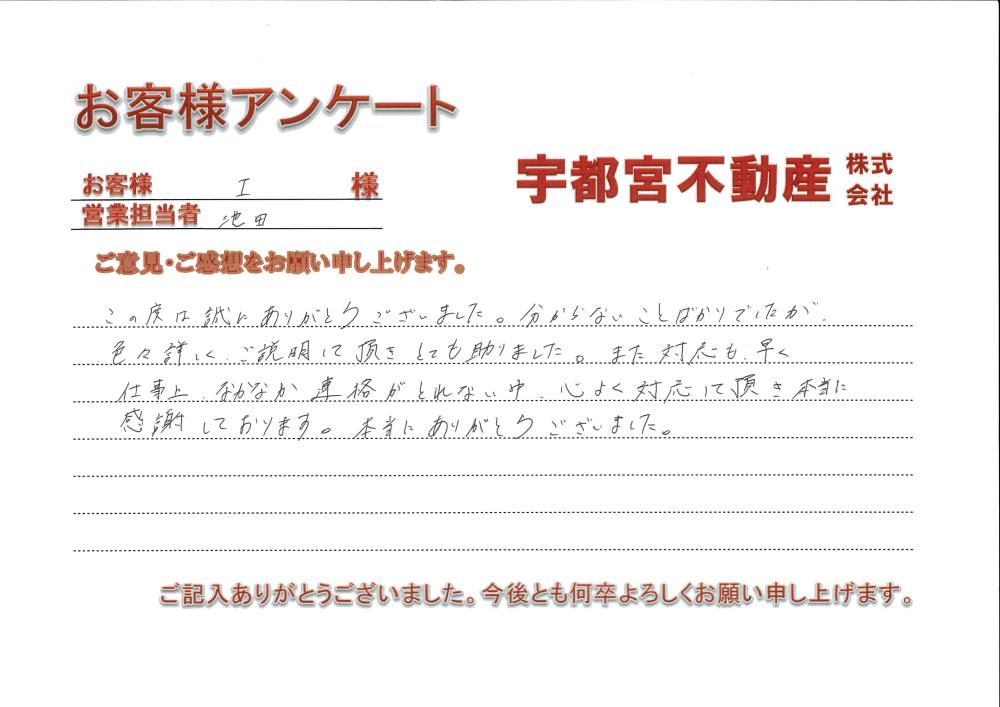 お客様アンケート
宇都宮不動産 株式会社
お客様 I 様
営業担当者 池田
ご意見・ご感想をお願い申し上げます。
この度は誠にありがとうございました。分からないことばかりでしたが、
色々詳しく、ご説明して頂きとても助りました。また対応も、早く
仕事上、なかなか連絡がとれない中、心よく対応して頂き本当に
感謝しております。本当にありがとうございました。
ご記入ありがとうございました。今後とも何卒よろしくお願い申し上げます。